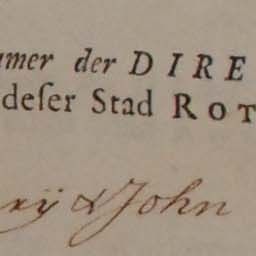 amer der DIRE
deſer Stad ROT
rÿ & John